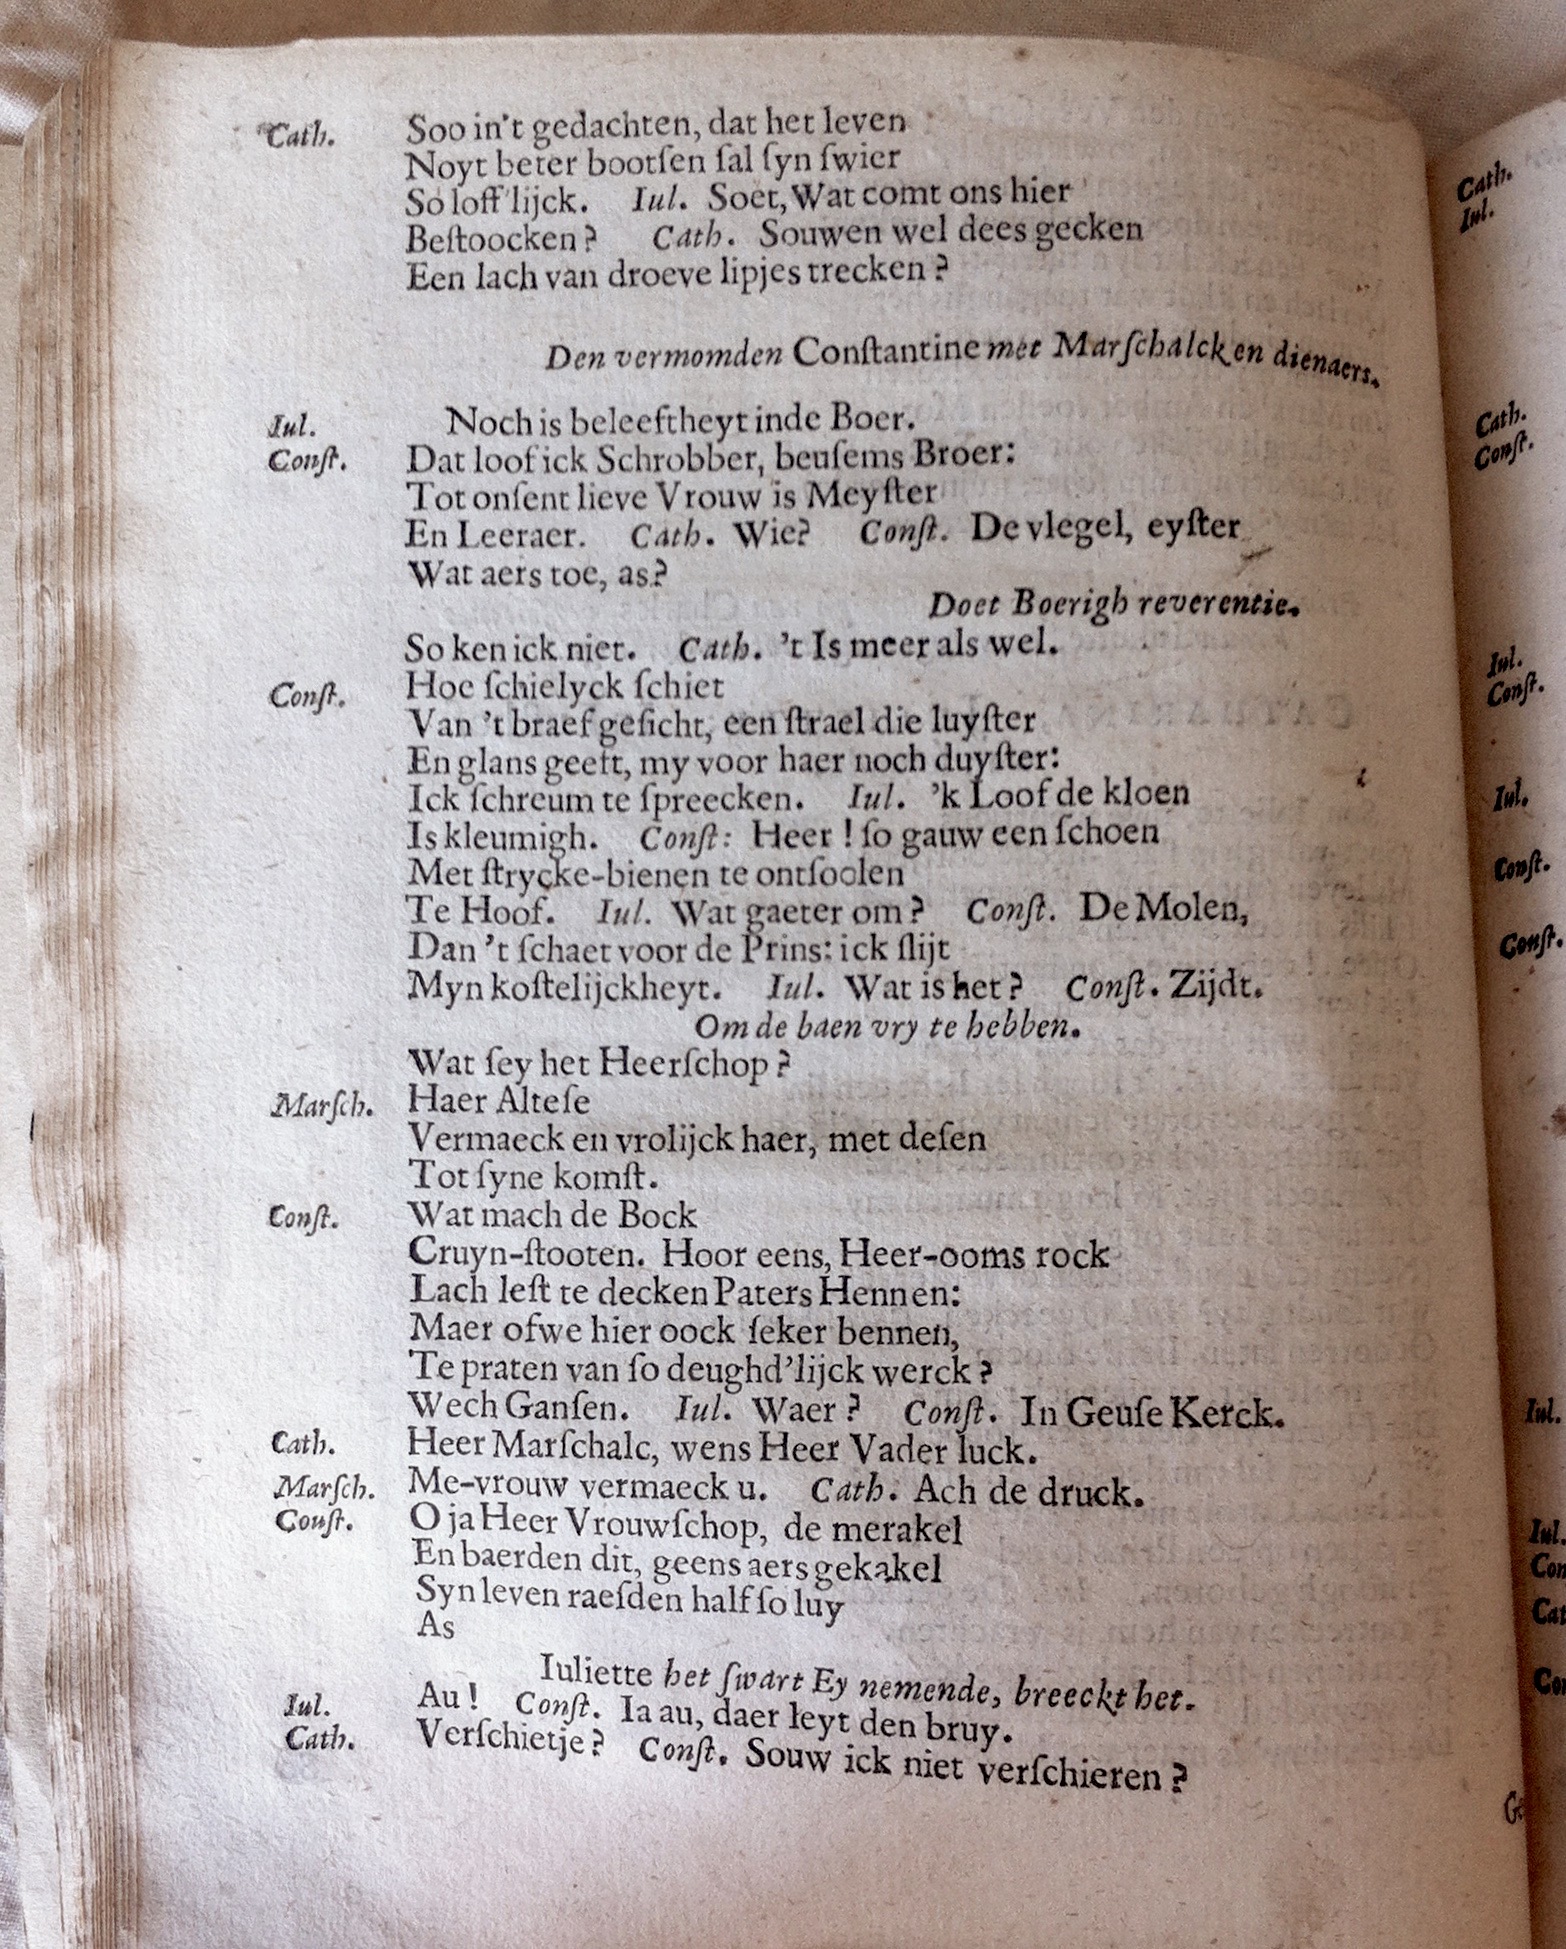 Cath. Soo in't gedachten, dat het leven
Noyt beter bootſen ſal ſyn ſwier
So loff'lijck. Iul. Soet, Wat comt ons hier
Beſtoocken? Cath. Souwen wel dees gecken
Een lach van droeve lipjes trecken?
Den vermomden Conſtantine met Marſchalck en dienaers.
Iul. Noch is beleeftheyt inde Boer.
Conſt. Dat loof ick Schrobber, beuſems Broer:
Tot onſent lieve Vrouw is Meyſter
En Leeraer. Cath. Wie? Conſt. De vlegel, eyſter
Wat aers toe, as?
Doet Boerigh reverentie.
So ken ick niet. Cath. 't Is meer als wel.
Conſt. Hoe ſchielyck ſchiet
Van 't braef geſicht, een ſtrael die luyſter
En glans geeft, my voor haer noch duyſter:
Ick ſchreum te ſpreecken. Iul. 'k Loof de kloen
Is kleumigh. Conſt: Heer! ſo gauw een ſchoen
Met ſtrycke-bienen te ontſoolen
Te Hoof. Iul. Wat gaeter om? Conſt. De Molen,
Dan 't ſchaet voor de Prins: ick ſlijt
Myn koſtelijckheyt. Iul. Wat is het? Conſt. Zijdt.
Om de baen vry te hebben.
Wat ſey het Heerſchop?
Marſch. Haer Alteſe
Vermaeck en vrolijck haer, met deſen
Tot ſyne komſt.
Conſt. Wat mach de Bock
Cruyn-ſtooten. Hoor eens, Heer-ooms rock
Lach leſt te decken Paters Hennen:
Maer of we hier oock ſeker bennen,
Te praten van ſo deughd'lijck werck?
Wech Ganſen. Iul. Waer? Conſt. In Geuſe Kerck.
Cath. Heer Marſchalc, wens Heer Vader luck.
Marſch. Me-vrouw vermaeck u. Cath. Ach de druck.
Couſt. O ja Heer Vrouwſchop, de merakel
En baerden dit, geens aers gekakel
Syn leven raeſden half ſo luy
As
Iuliette het ſwart Ey nemende, breeckt het.
Iul. Au! Conſt. Ia au, daer leyt den bruy.
Cath. Verſchietje? Conſt. Souw ick niet verſchieren?
Cath.
Iul.
Cath.
Conſt.
Iul.
Conſt.
Iul.
Conſt.
Conſt.
Iul.
Iul.